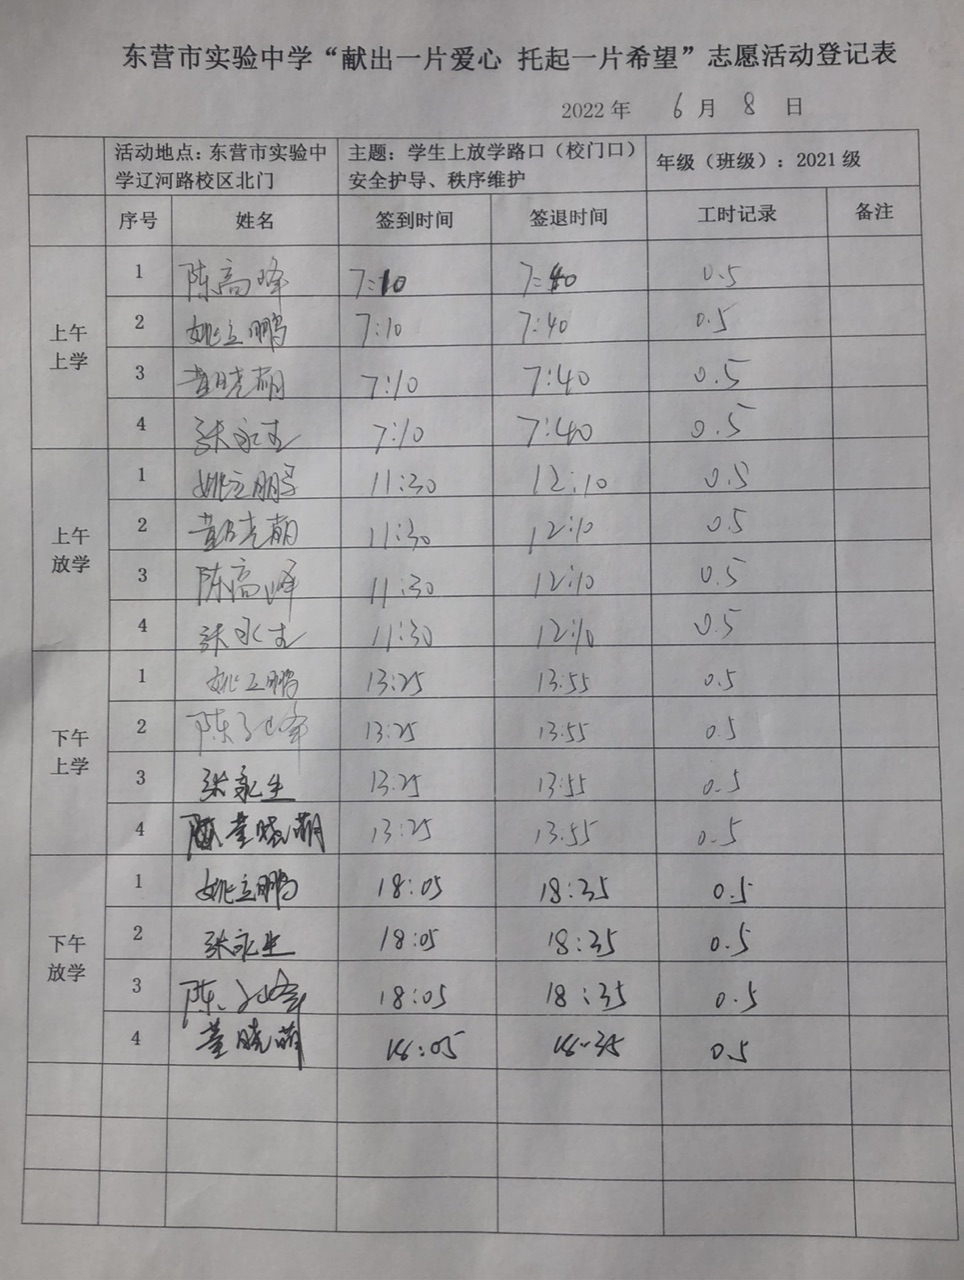 东营市实验中学“献出一片爱心 托起一片希望”志愿活动登记表
2022 年 6 月 8 日
活动地点：东营市实验中学辽河路校区北门 主题：学生上放学路口（校门口）安全护导、秩序维护 年级（班级）：2021 级
序号 姓名 签到时间 签退时间 工时记录 备注
上午上学
1 陈高峰 7:10 7:40 0.5
2 姚立鹏 7:10 7:40 0.5
3 董晓萌 7:10 7:40 0.5
4 张永生 7:10 7:40 0.5
上午放学
1 姚立鹏 11:30 12:10 0.5
2 董晓萌 11:30 12:10 0.5
3 陈高峰 11:30 12:10 0.5
4 张永生 11:30 12:10 0.5
下午上学
1 姚立鹏 13:25 13:55 0.5
2 陈高峰 13:25 13:55 0.5
3 张永生 13:25 13:55 0.5
4 董晓萌 13:25 13:55 0.5
下午放学
1 姚立鹏 18:05 18:35 0.5
2 张永生 18:05 18:35 0.5
3 陈高峰 18:05 18:35 0.5
4 董晓萌 18:05 18:35 0.5